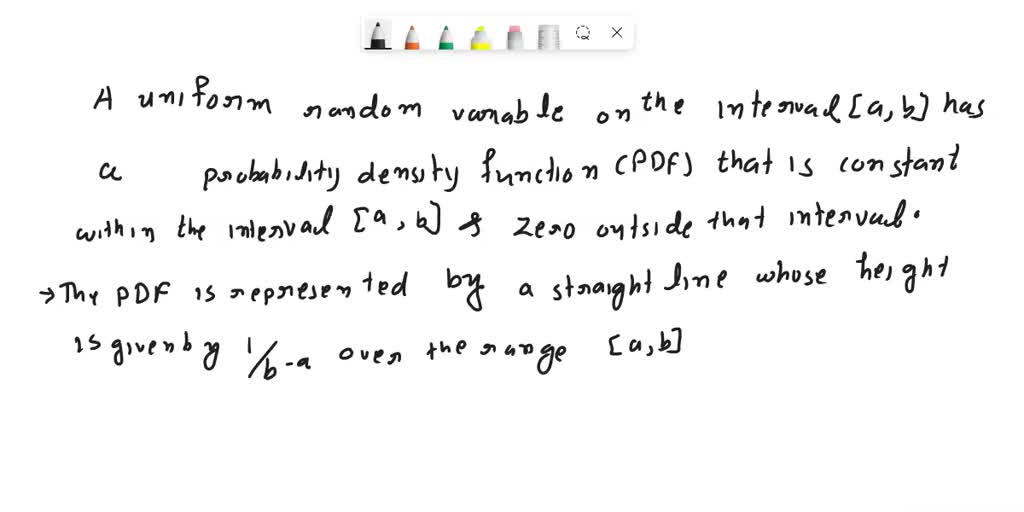 A uniform random variable on the interval [a, b] has
a probability density function (PDF) that is constant
within the interval [a, b] & zero outside that interval.
→ The PDF is represented by a straight line whose height
is given by 1/b-a over the range [a, b]